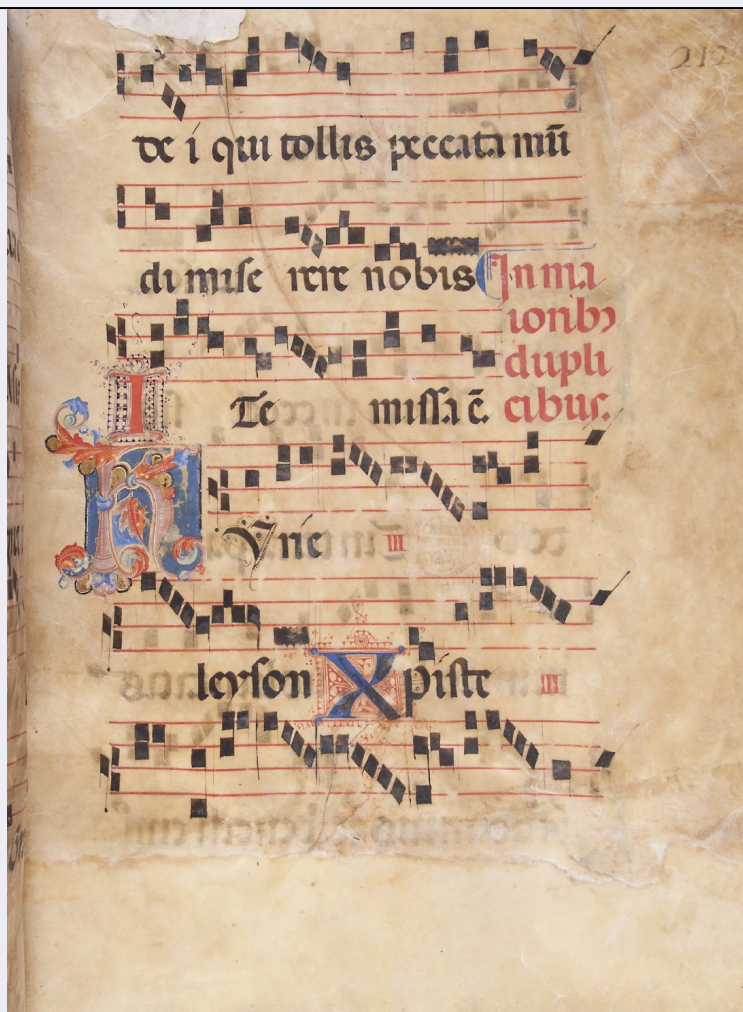 212
de i qui tollis peccata mũ
di mise rere nobis In ma
ioribꝫ
dupli
I Te missa ē. cibus.
Kyrie III
leyson Xpiste III